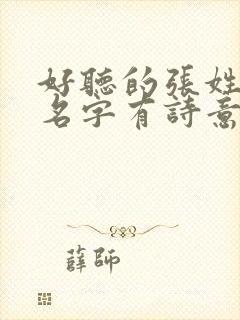 好聽的張姓
名字有詩意
薛師